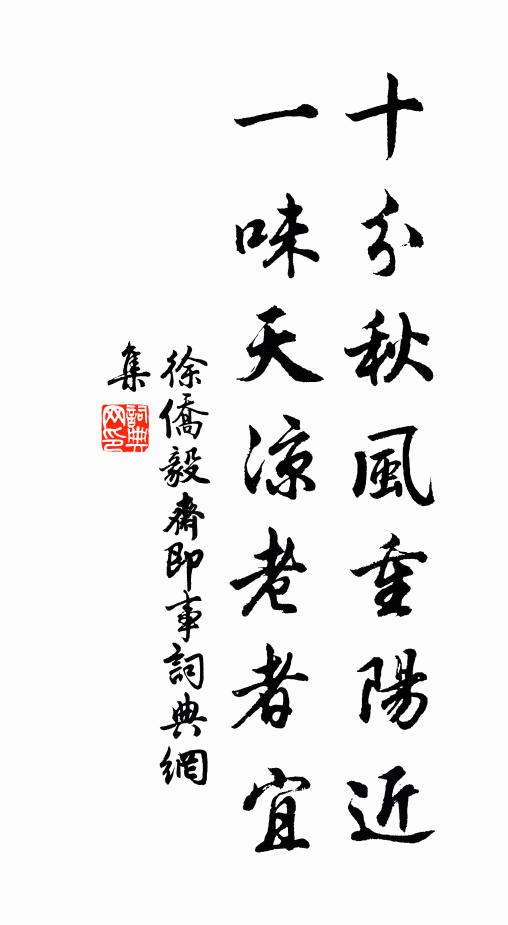 十分秋風重陽近
一味天涼老者宜
徐僑毅齋即事詞典網
集
詞典
网印